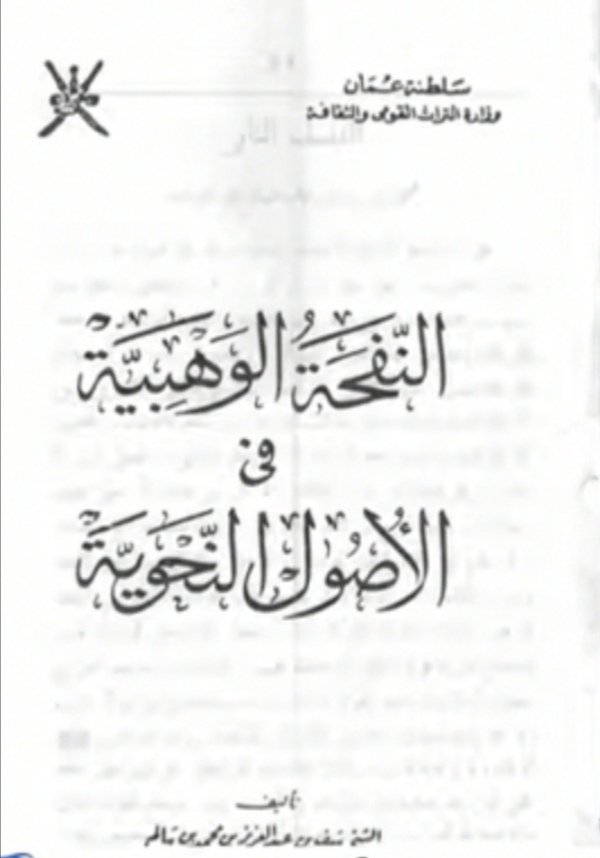 سلطنة عُمان
وزارة التراث القومى والثقافة
النَّفحَةُ الوَهْبِيَّة
فى
الأُصُول النَّحويَّة
تأليف
عبد العزيز بن محمد بن سالم